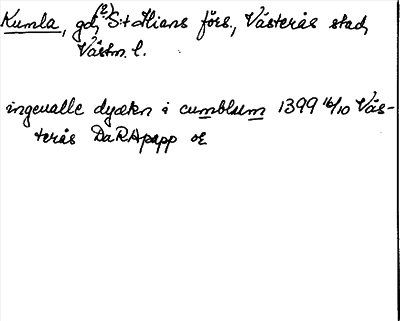 Kumla, gd, (?) S:t Ilians förs., Västerås stad,
Västm. l.
ingeualle dyækn i cumblum 1399 16/10 Väs-
terås DaRApapp or